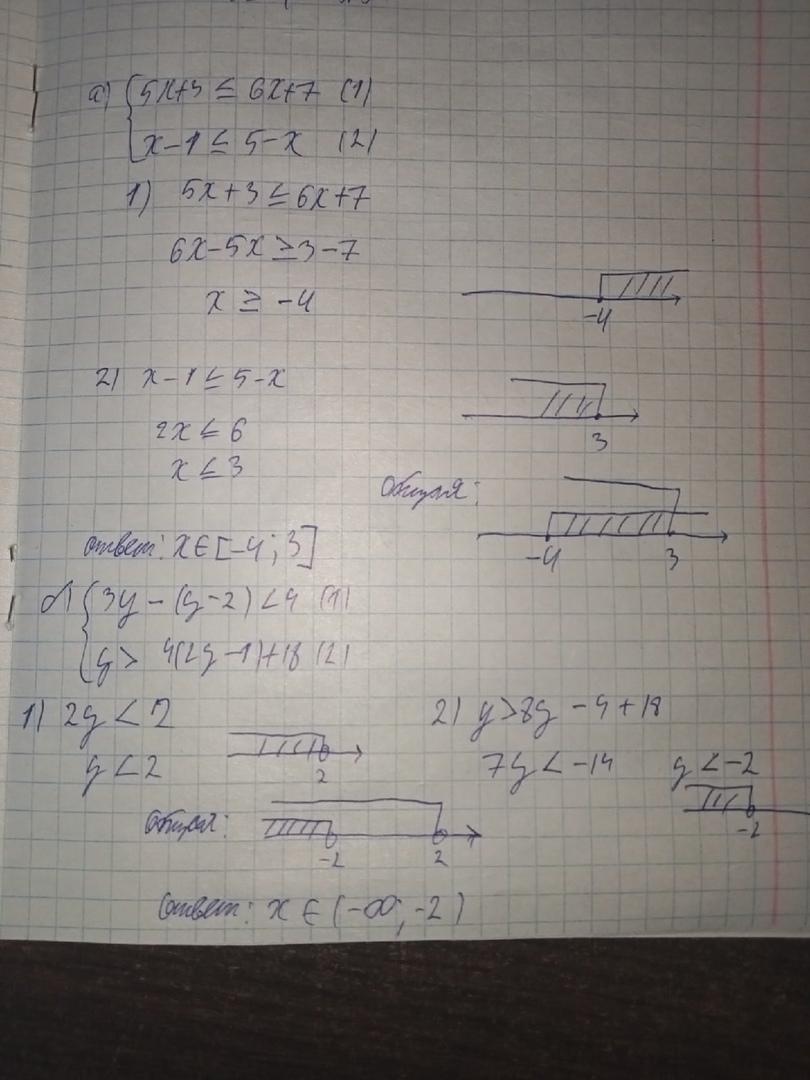 а) { 5x+3 ≤ 6x+7 (1)
x-1 ≤ 5-x (2)
1) 5x+3 ≤ 6x+7
6x-5x ≥ 3-7
x ≥ -4
-4
2) x-1 ≤ 5-x
2x ≤ 6
3
x ≤ 3
Общая:
-4 3
ответ: x∈[-4; 3]
б) { 3y - (y-2) < 4 (1)
y > 4(2y-1)+18 (2)
1) 2y < 2
2) y > 8y - 4 + 18
y < 2
2
7y < -14 y < -2
-2
Общая:
-2 2
Ответ: x ∈ (-∞; -2)